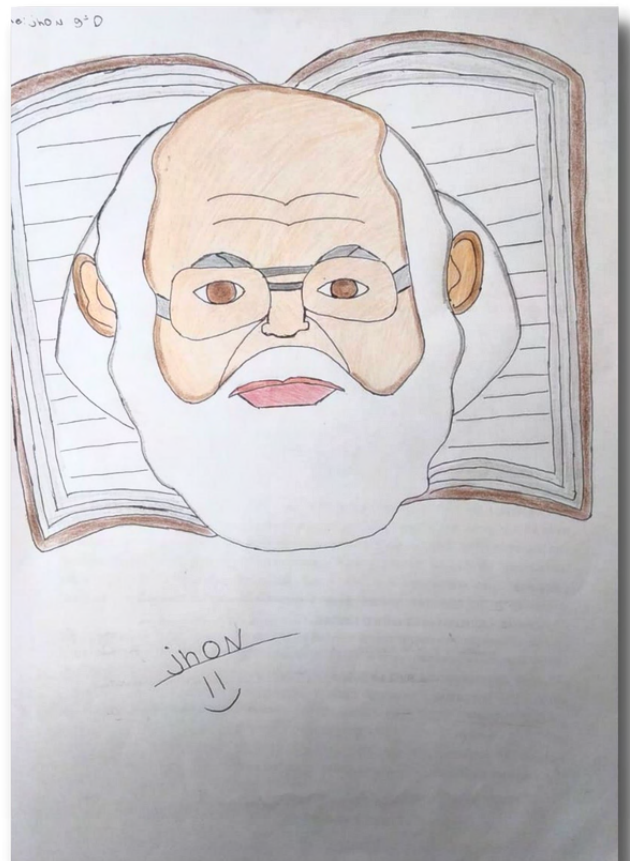 o: jhON 9º D
jhON